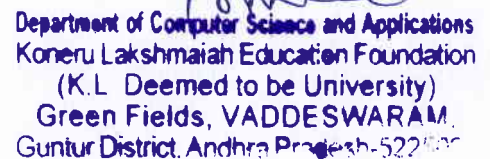 Department of Computer Science and Applications
Koneru Lakshmaiah Education Foundation
(K.L Deemed to be University)
Green Fields, VADDESWARAM.
Guntur District, Andhra Pradesh-522